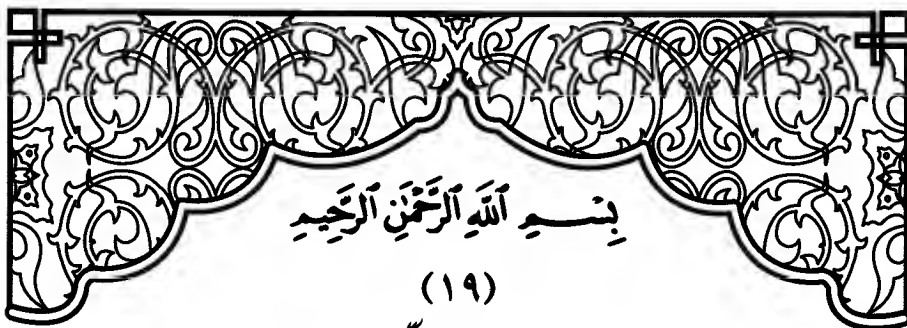 بِسْمِ ٱللَّهِ ٱلرَّحْمَٰنِ ٱلرَّحِيمِ
(١٩)